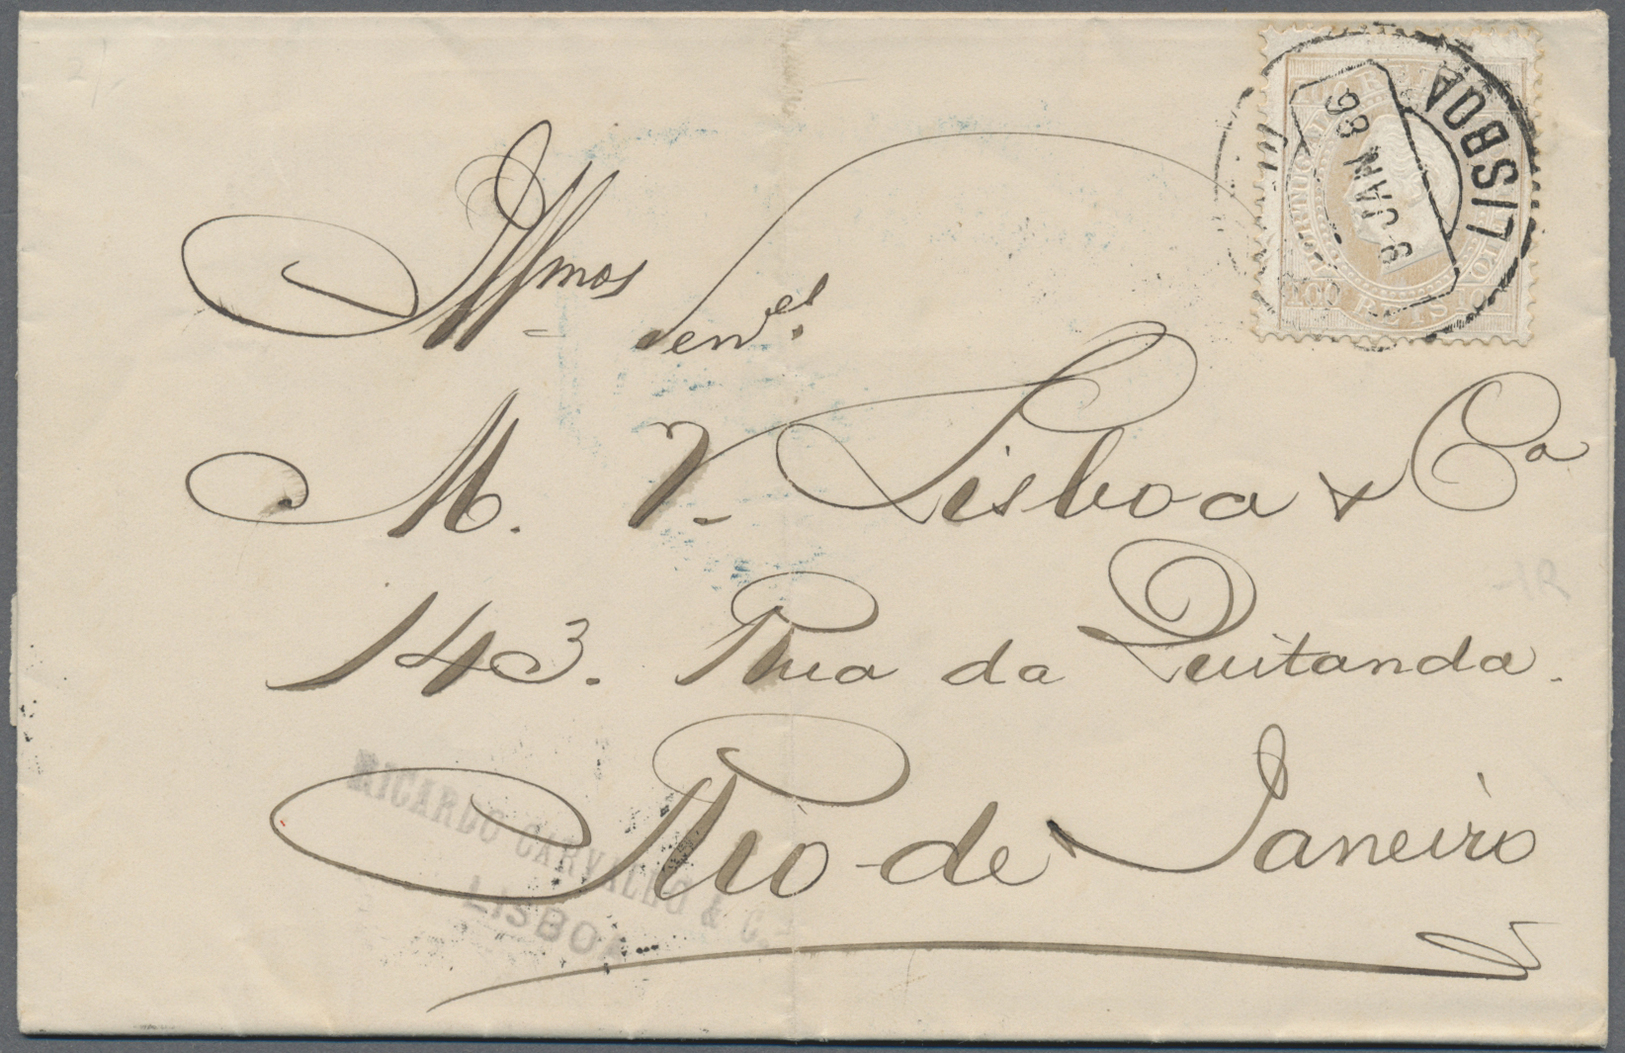 LISBOA
9 JAN 86
PORTUGAL
100 REIS
Illmos Senres
M. V. Lisboa & Ca
143. Rua da Quitanda.
Rio de Janeiro
RICARDO CARVALHO & C.ª
LISBOA